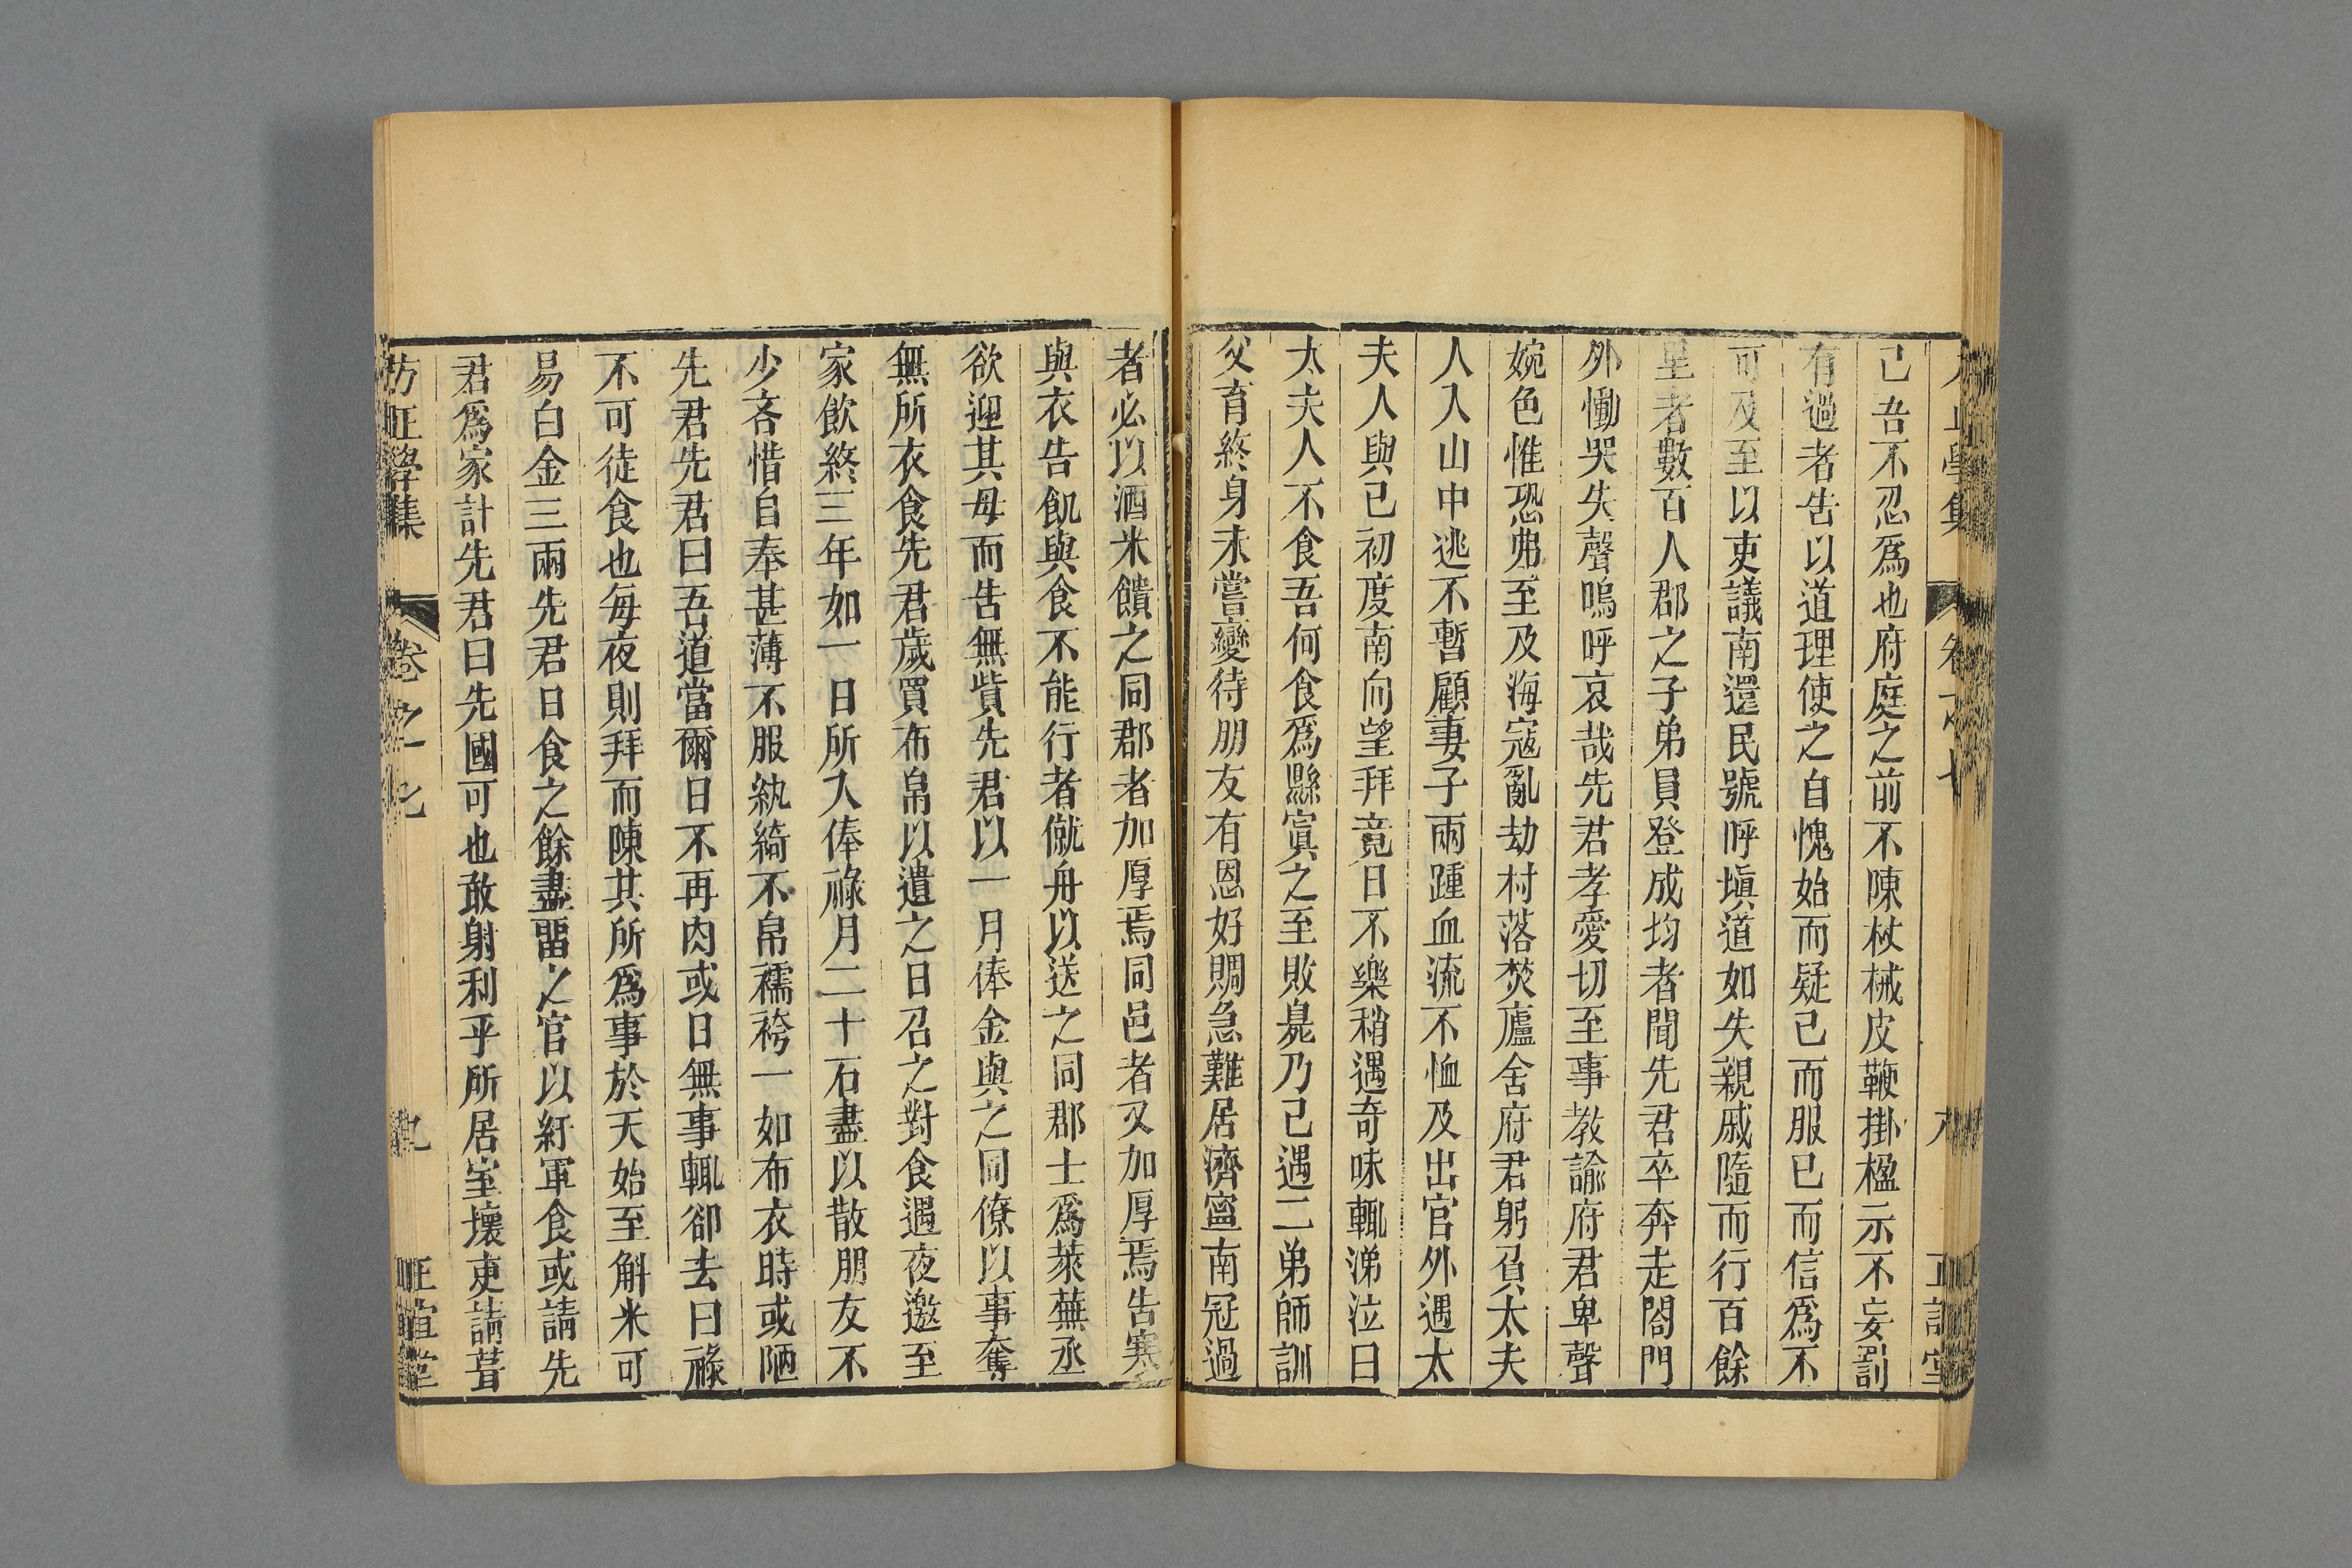 己吾不忍爲也府庭之前不陳杖械皮鞭掛楹示不妄罰
有過者告以道理使之自愧始而疑己而服已而信爲不
可及至以吏議南還民號呼塡道如失親戚隨而行百餘
里者數百人郡之子弟員登成均者聞先君卒奔走閤門
外慟哭失聲嗚呼哀哉先君孝愛切至事教諭府君卑聲
婉色惟恐弗至及海寇亂劫村落焚廬舍府君躬負太夫
人入山中逃不暫顧妻子兩踵血流不恤及出官外遇太
夫人與已初度南向望拜竟日不樂稍遇奇味輒涕泣曰
太夫人不食吾何食爲縣寘之至敗臭乃已遇二弟師訓
父育終身未嘗變待朋友有恩好賙急難居濟寧南冠過
者必以酒米饋之同郡者加厚焉同邑者又加厚焉告寒
與衣告飢與食不能行者僦舟以送之同郡士爲萊蕪丞
欲迎其母而告無貲先君以一月俸金與之同僚以事奪
無所衣食先君歲買布帛以遺之日召之對食遇夜邀至
家飲終三年如一日所入俸祿月二十石盡以散朋友不
少吝惜自奉甚薄不服紈綺不帛襦袴一如布衣時或陋
先君先君曰吾道當爾日不再肉或日無事輒卻去曰祿
不可徒食也每夜則拜而陳其所爲事於天始至斛米可
易白金三兩先君日食之餘盡畱之官以紓軍食或請先
君爲家計先君曰先國可也敢射利乎所居室壞吏請葺
卷之